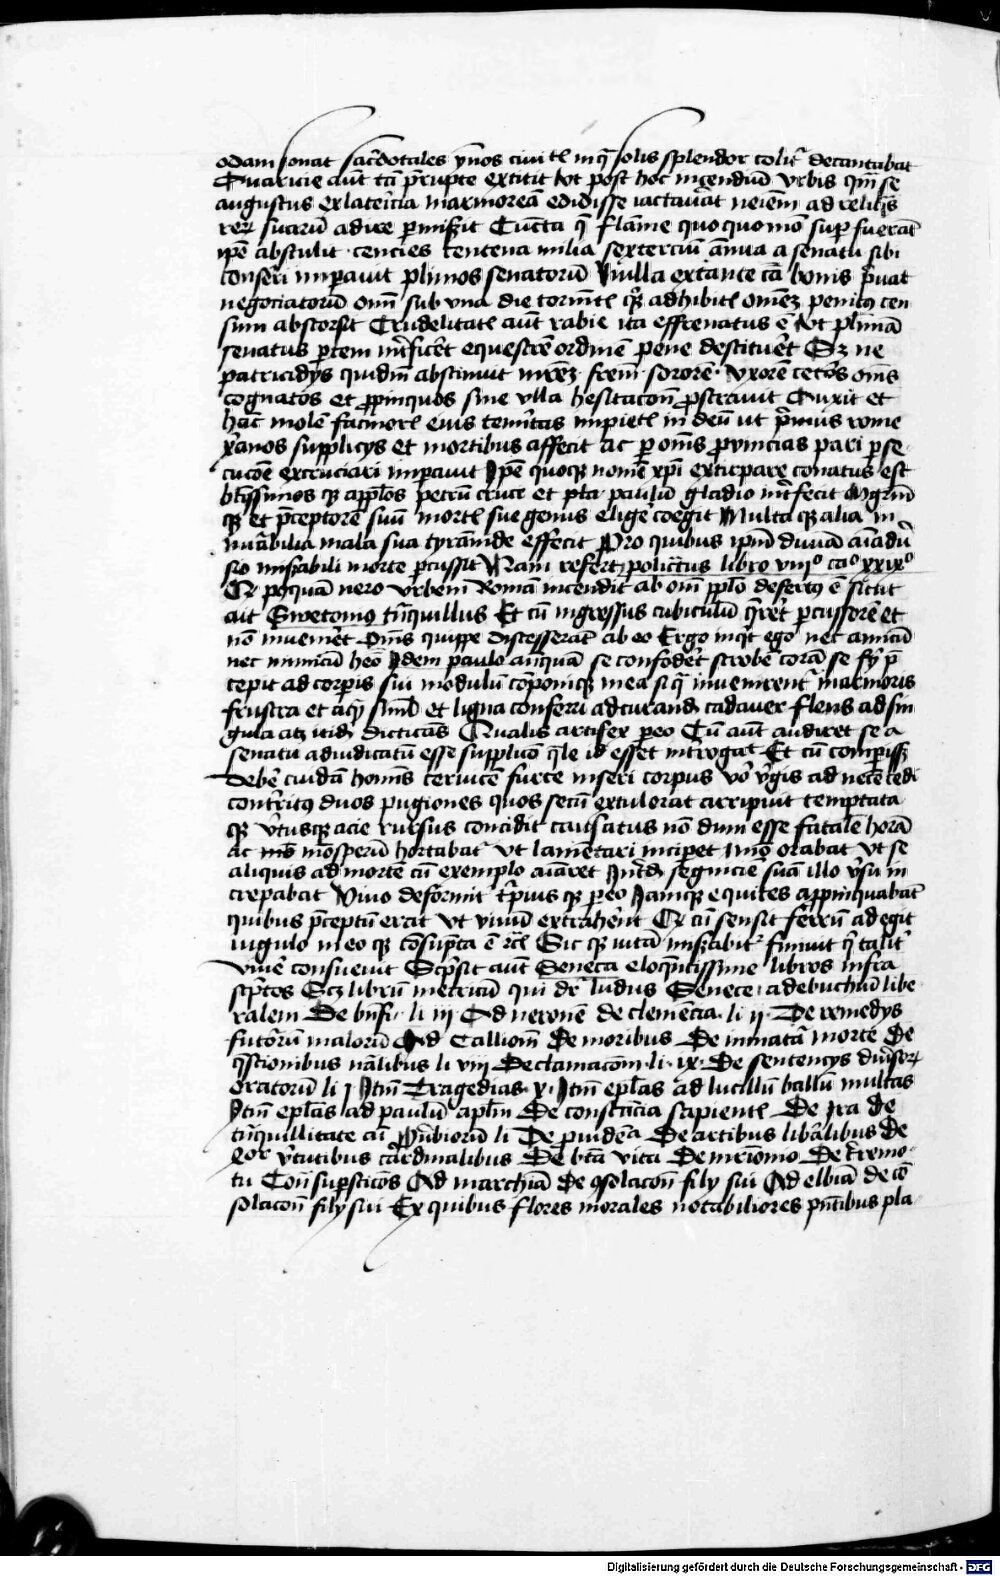 odam sonat sacerdotales ymnos civitatis in qua solis splendor colitur decantabat
Avaricie aut tam prerupte extitit ut post hoc incendium Urbis quam se
augustus ex latericia marmoream edidisse iactaverat neminem ad reliquias
rerum suarum adire permiserit Cuncta que flamme quoquomodo superfuerant
ipse abstulit · cencies centena milia sextercium annua a senatu sibi
conferri imperavit plurimos senatorum Nulla extante causa bonis privat
negociatorum omnium sub una die tormentis quoque adhibitis omnem penitus cen
sum abstorsit Crudelitatis autem rabie ita effrenatus est ut plurimam
senatus partem interficeret equestrem ordinem pene destitueret Sed ne
patricidiis quidem abstinuit matrem fratrem sororem · Uxorem ceteros omnes
cognatos et propinquos sine ulla hesitacione prostravit Auxit et
hanc molem facinoris eius temeritas impietatis in deum ut primus rome
christianos suppliciis et mortibus affecit ac per omnes provincias pari perse
cucione excruciari imperavit Ipsum quoque nomen christi extirpare conatus est
beatissimos que apostolos petrum cruce et paulum gladio interfecit Magistrum
que et preceptorem suum mortis sue genus eligere coegit Multa que alia in
mirabilia mala sua tyrannide effecit Pro quibus ipsum divina animadver
sio miserabili morte percussit Nam refert policratus libro viii° ca° xxix°
Quod postquam nero urbem Romam incendit ab omni populo desertus est sicut
ait Swetonius tranquillus Et cum ingressus cubiculum quereret percussorem et
non inveniret Omnes quippe discesserant ab eo Ergo inquit ego nec amicum
nec inimicum habeo Idem paulo antequam se confoderet scrobem coram se fieri pre
cepit ad corporis sui modulum componique mea si qua invenirentur marmoris
frustra et aquam simul et ligna conferri ad curandum cadaver flens ad sin
gula atque itidem dictitans Qualis artifex pereo Cum autem audiret se a
senatu adiudicatum esse supplicio quale id esset interrogat Et cum comperisset
debere cuidam hominis cervicem furce inseri corpus vero virgis ad necem cedi
conterritus duos pugiones quos secum extulerat arripuit temptata
que utrusque acie rursus condidit causatus nondum esse fatalem horam
ac modo Sporum hortabatur ut lamentari inciperet modo orabat ut se
aliquis ad mortem cum exemplo iuvaret Interdum segniciem suam illo versu in
crepabat Vivo deformiter turpius que pereo Iamque equites appropinquabant
quibus preceptum erat ut vivum extraherent Quod cum sensit ferrum adegit
iugulo in eo que consumpta est etc Sic que vitam miserabiliter finivit qui taliter
vivere consuevit Scripsit autem Seneca eloquentissime libros infra
scriptos Scilicet librum metricum qui dicitur ludus Senece · ad ebucium libe
ralem De beneficiis li iii Ad neronem de clemencia · li ii · De remediis
futurorum malorum Ad Gallionem De moribus De immatura morte De
questionibus naturalibus li viii Declamacionum · li · ix · De sentenciis diversorum
oratorum li i Item Tragedias · x · Item epistolas ad lucillum ballum multas
Item epistolas ad paulum apostolum De constancia sapientis De Ira de
tranquillitate animi proverbiorum li De providencia De artibus liberalibus De
quatuor virtutibus cardinalibus De beata vita De matrimonio De terremo
tu Contra supersticiones Ad marchiam De consolacione filii sui Ad elbiam de con
solacione filii sui Ex quibus flores morales notabiliores presentibus pla
Digitalisierung gefördert durch die Deutsche Forschungsgemeinschaft - DFG